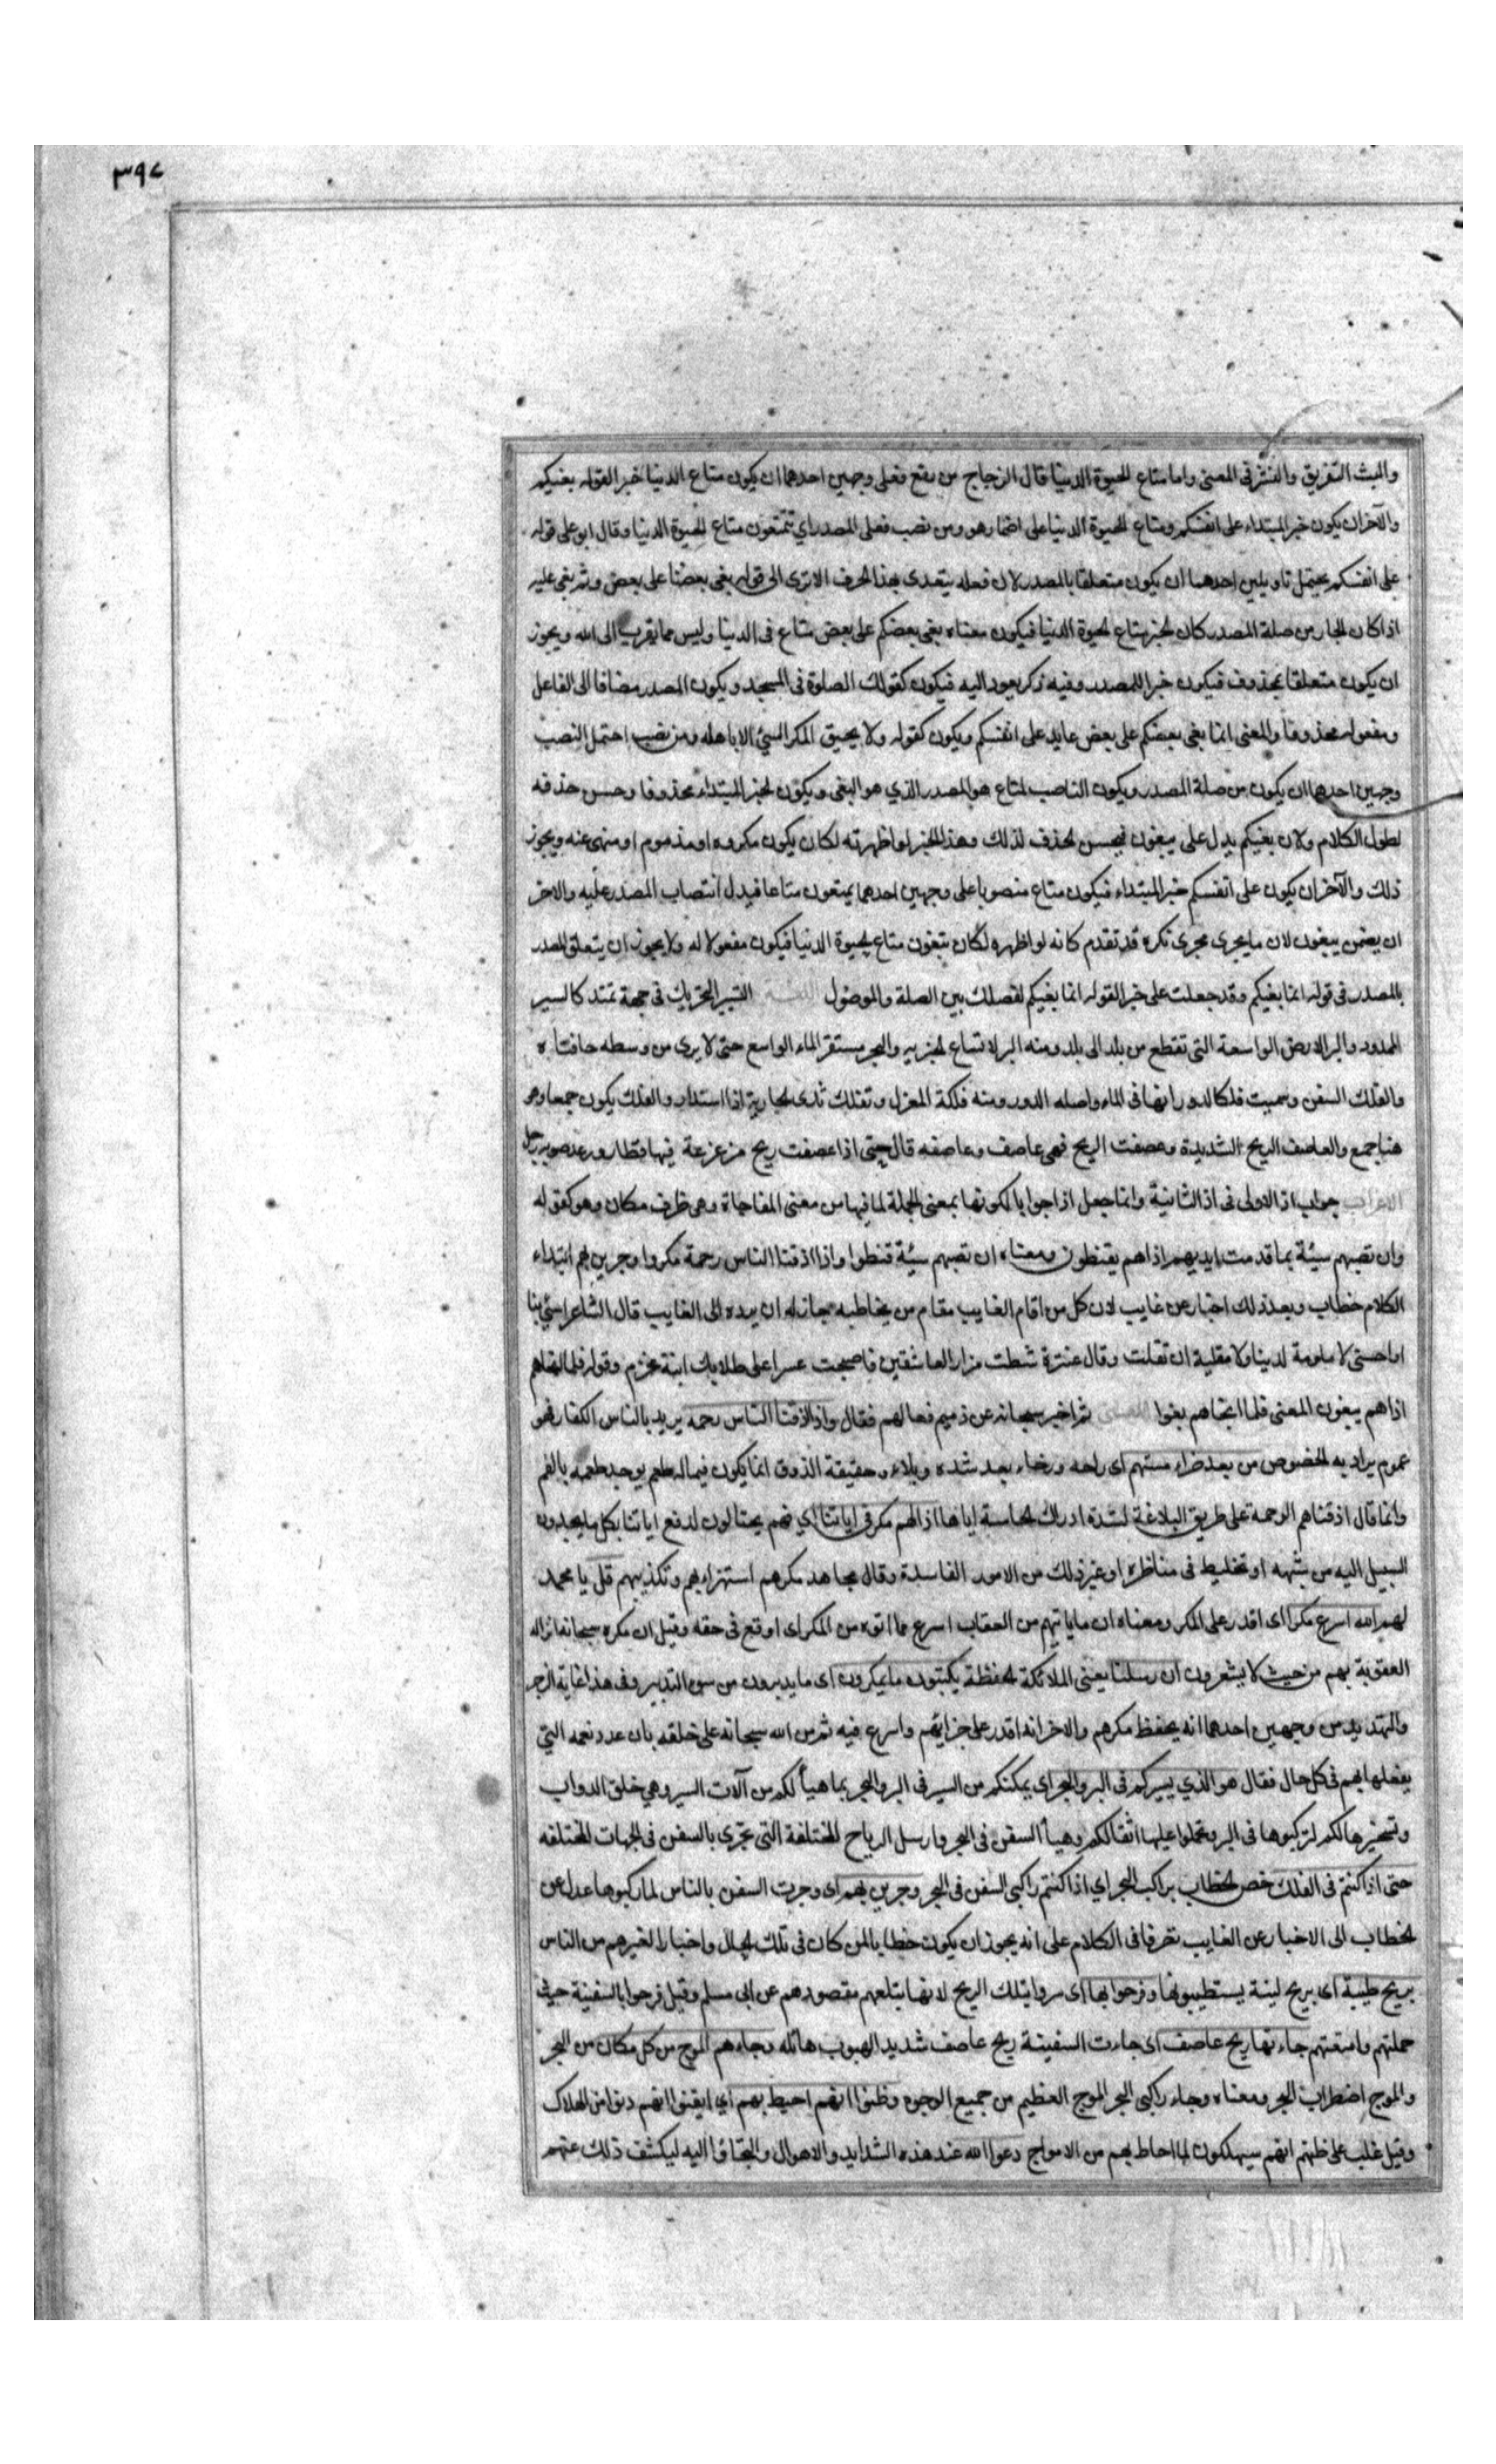 ٣٩٧
والبث التفريق والنشر في المعنى واما متاع الحيوة الدنيا قال الزجاج من رفع فعلى وجهين احدهما ان يكون متاع الدنيا خبرا لقوله بغيكم
والآخر ان يكون خبر المبتداء على انفسكم ومتاع الحيوة الدنيا على اضمار هو ومن نصب فعلى المصدر اي تتمتعون متاع الحيوة الدنيا وقال ابو على قوله
على انفسكم يحتمل تاويلين احدهما ان يكون متعلقا بالمصدر لان فعله يتعدى بهذا الحرف الا ترى الى قوله بغى بعضنا على بعض وثم بغى عليه
اذا كان الجار من صلة المصدر كان الخبر متاع الحيوة الدنيا فيكون معناه بغى بعضكم على بعض متاع في الدنيا وليس مما يقرب الى الله ويجوز
ان يكون متعلقا بمحذوف فيكون خبرا للمصدر وفيه ذكر يعود اليه فيكون كقولك الصلوة في المسجد ويكون المصدر مضافا الى الفاعل
ومفعوله محذوفا والمعنى انما بغى بعضكم على بعض عايد على انفسكم ويكون كقوله ولا يحيق المكر السيئ الا باهله ومن نصب احتمل النصب
وجهين احدهما ان يكون من صلة المصدر ويكون الناصب لمتاع هو المصدر الذي هو البغى ويكون خبر المبتداء محذوفا وحسن حذفه
لطول الكلام ولان بغيكم يدل على يبغون فيحسن الحذف لذلك وهذا الخبر لو اظهرته لكان يكون مكروه او مذموم او منهى عنه ويجوز
ذلك والآخر ان يكون على انفسكم خبر المبتداء فيكون متاع منصوبا على وجهين احدهما يمتعون متاعا فيدل انتصاب المصدر عليه والاخر
ان يضمن يبغون لان ما يجرى مجرى ذكره قد تقدم كانه لو اظهره لكان يبغون متاع الحيوة الدنيا فيكون مفعولا له ولا يجوز ان يتعلق المصدر
بالمصدر في قوله انما بغيكم وقد جعلت على خبرا لقوله انما بغيكم لفصلك بين الصلة والموصول اللغة التسيير التحريك في جهة تمتد كالسير
الممدود والبر الارض الواسعة التي تقطع من بلد الى بلد ومنه البر لاتساع الخير به والبحر مستقر الماء الواسع حتى لا يرى من وسطه حافتاه
والفلك السفن وسميت فلكا لدورانها في الماء واصله الدور ومنه فلكة المغزل وتفلك ثدى الجارية اذا استدار والفلك يكون جمعا وهو
هنا جمع والعاصف الريح الشديدة وعصفت الريح فهى عاصف وعاصفه قال حتى اذا عصفت ريح مزعزعة فيها قطار ورعد صوبه زجل
الاعراب جواب اذ الاولى في اذ الثانية وانما جعل اذا جوابا لكونها بمعنى الجملة لما فيها من معنى المفاجاة وهى ظرف مكان وهو كقوله
وان تصبهم سيئة بما قدمت ايديهم اذا هم يقنطون ومعناه ان تصبهم سيئة قنطوا واذا اذقنا الناس رحمة مكروا وجرين بهم ابتداء
الكلام خطاب وبعد ذلك اخبار عن غايب لان كل من اقام الغايب مقام من يخاطبه جاز له ان يرده الى الغايب قال الشاعر اسيئي بنا
او احسنى لا ملومة لدينا ولا مقلية ان تقلت وقال عنترة شطت مزار العاشقين فاصبحت عسرا على طلابك ابنة مخرم وقوله فلما انجاهم
اذا هم يبغون المعنى فلما انجاهم بغوا المعنى ثم اخبر سبحانه عن ذميم فعالهم فقال واذا اذقنا الناس رحمه يريد بالناس الكفار فهو
عموم يراد به الخصوص من بعد ضراء مستهم اى راحه ورخاء بعد شده وبلاء وحقيقة الذوق انما يكون فيما له طعم يوجد طعمه بالفم
وانما قال اذقناهم الرحمة على طريق البلاغة لشدة ادراك الحاسة اياها اذا لهم مكر في اياتنا اي فهم يحتالون لدفع اياتنا بكل ما يجدون
السبيل اليه من شبهه او تخليط في مناظره او غير ذلك من الامور الفاسدة وقال مجاهد مكرهم استهزاءهم وتكذيبهم قل يا محمد
لهم الله اسرع مكرا اى اقدر على المكر ومعناه ان ما ياتيهم من العقاب اسرع مما اتوه من المكر اى اوقع في حقه وقيل ان مكره سبحانه انزاله
العقوبة بهم من حيث لا يشعرون ان رسلنا يعنى الملائكة الحفظة يكتبون ما يمكرون اى ما يدبرون من سوء التدبير وفي هذا غاية الزجر
والتهديد من وجهين احدهما انه يحفظ مكرهم والاخر انه اقدر على جزائهم واسرع فيه ثم من الله سبحانه على خلقه بان عدد نعمه التي
يفعلها بهم في كل حال فقال هو الذي يسيركم في البر والبحر اى يمكنكم من السير في البر والبحر بما هيأ لكم من آلات السير وهي خلق الدواب
وتسخيرها لكم لتركبوها في البر وتحملوا عليها اثقالكم وهيأ السفن في البحر وارسل الرياح المختلفة التي تجرى بالسفن في الجهات المختلفه
حتى اذا كنتم في الفلك خص الخطاب براكب البحر اي اذا كنتم راكبى السفن في البحر وجرين بهم اى وجرت السفن بالناس لما ركبوها عدل عن
الخطاب الى الاخبار عن الغايب تصرفا في الكلام على انه يجوز ان يكون خطابا لمن كان في تلك الحال واخبارا لغيرهم من الناس
بريح طيبة اى بريح لينة يستطيبونها وفرحوا بها اى سروا بتلك الريح لانها تبلغهم مقصودهم عن ابى مسلم وقيل فرحوا بالسفينة حيث
حملتهم وامتعتهم جاءتها ريح عاصف اى جاءت السفينة ريح عاصف شديد الهبوب هائله وجاءهم الموج من كل مكان من البحر
والموج اضطراب البحر ومعناه وجاء راكبى البحر الموج العظيم من جميع الوجوه وظنوا انهم احيط بهم اي ايقنوا انهم دنوا من الهلاك
وقيل غلب على ظنهم انهم سيهلكون لما احاط بهم من الامواج دعوا الله عند هذه الشدايد والاهوال والتجاؤا اليه ليكشف ذلك عنهم